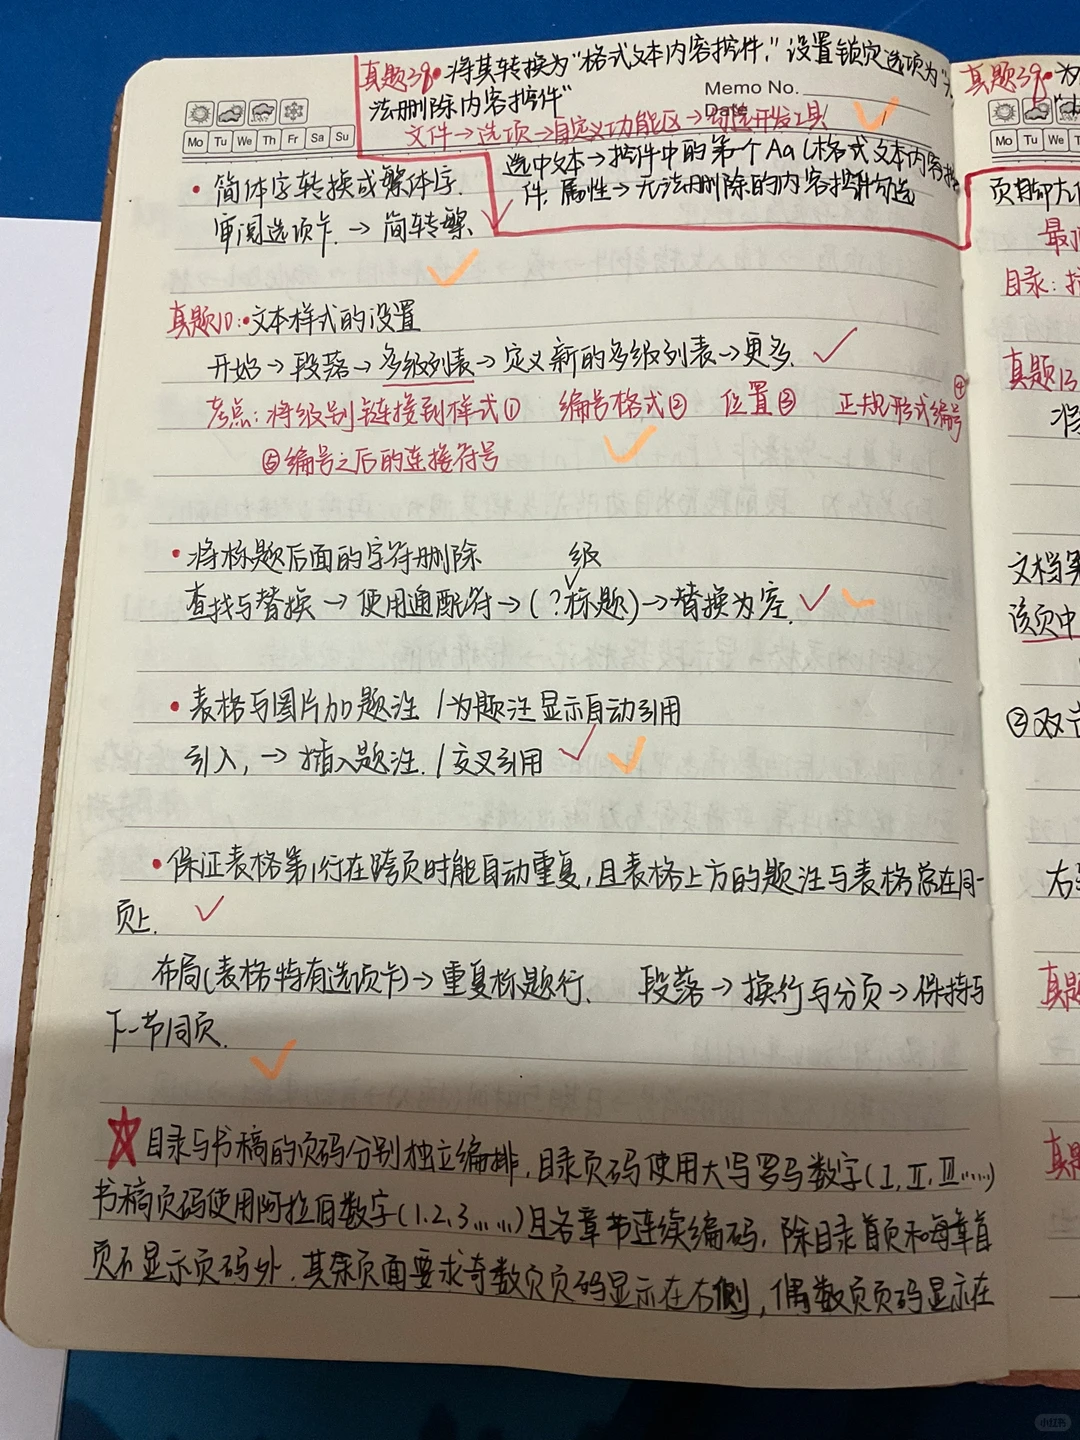 真题38•将其转换为“格式文本内容控件”,设置锁定选项为“无
法删除内容控件”
Memo No.
Date
文件→选项→自定义功能区→勾选开发工具
选中文本→控件中的第一个Aa(格式文本内容控
件,属性→无法删除的内容控件勾选
Mo Tu We Th Fr Sa Su
•简体字转换成繁体字.
审阅选项卡.→简转繁.
真题10:•文本样式的设置
开始→段落→多级列表→定义新的多级列表→更多.
考点:将级别链接到样式① 编号格式② 位置③ 正规形式编号④
⑤编号之后的连接符号
•将标题后面的字符删除
级
查找与替换→使用通配符→(?标题)→替换为空.
•表格与图片加题注/为题注显示自动引用
引入,→插入题注./交叉引用
•保证表格第1行在跨页时能自动重复,且表格上方的题注与表格总在同一
页上.
布局(表格特有选项卡)→重复标题行、 段落→换行与分页→保持与
下一节同页.
目录与书稿的页码分别独立编排,目录页码使用大写罗马数字(I,II,III……)
书稿页码使用阿拉伯数字(1.2.3……)且各章节连续编码,除目录首页和每章首
页不显示页码外.其余页面要求奇数页页码显示在右侧,偶数页页码显示在
真题39•为
Mo Tu We T
页脚左
最
目录:
真题13
将
文档第
该页中
②双
右
真题
真题
小红书